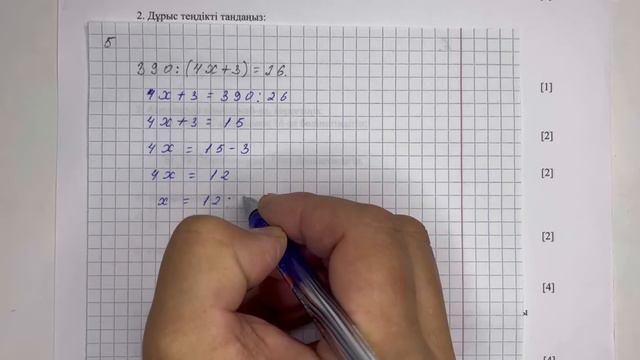 2. Дұрыс теңдікті таңдаңыз:
5
390:(4x+3)=26.
4x+3=390:26
4x+3=15
4x=15-3
4x=12
x=12:
[1]
[2]
[2]
[2]
[4]